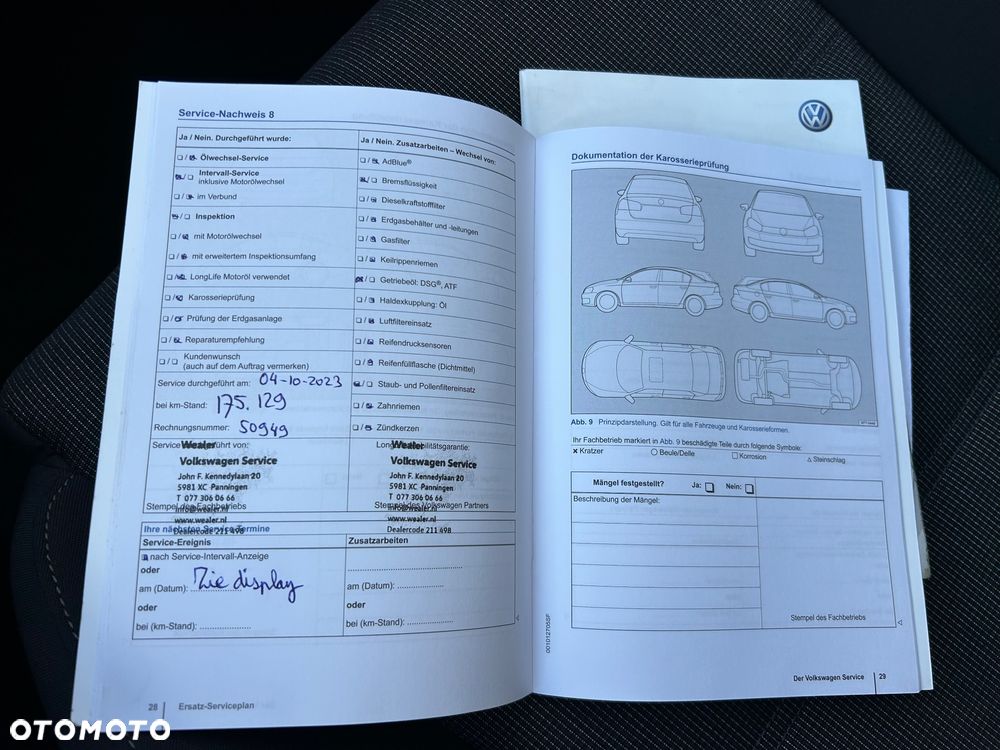 Service-Nachweis 8
Ja / Nein. Durchgeführt wurde:
Ölwechsel-Service
Intervall-Service
inklusive Motorölwechsel
im Verbund
Inspektion
mit Motorölwechsel
mit erweitertem Inspektionsumfang
LongLife Motoröl verwendet
Karosserieprüfung
Prüfung der Erdgasanlage
Reparaturempfehlung
Kundenwunsch
(auch auf dem Auftrag vermerken)
Service durchgeführt am: 04-10-2023
bei km-Stand: 175.129
Rechnungsnummer: 50949
Ja / Nein. Zusatzarbeiten – Wechsel von:
AdBlue®
Bremsflüssigkeit
Dieselkraftstofffilter
Erdgasbehälter und -leitungen
Gasfilter
Keilrippenriemen
Getriebeöl: DSG®, ATF
Haldexkupplung: Öl
Luftfiltereinsatz
Reifendrucksensoren
Reifenfüllflasche (Dichtmittel)
Staub- und Pollenfiltereinsatz
Zahnriemen
Zündkerzen
Wealer
Volkswagen Service
John F. Kennedylaan 20
5981 XC Panningen
T 077 306 06 66
Stempel des Fachbetriebs
info@wealer.nl
www.wealer.nl
Dealercode 211 498
Wealer
Volkswagen Service
John F. Kennedylaan 20
5981 XC Panningen
T 077 306 06 66
Stempel des Volkswagen Partners
info@wealer.nl
www.wealer.nl
Dealercode 211 498
Ihre nächsten Service-Termine
Service-Ereignis
nach Service-Intervall-Anzeige
oder
am (Datum): Zie display
oder
bei (km-Stand):
Zusatzarbeiten
am (Datum):
oder
bei (km-Stand):
28 Ersatz-Serviceplan
Dokumentation der Karosserieprüfung
Abb. 9 Prinzipdarstellung. Gilt für alle Fahrzeuge und Karosserieformen.
Ihr Fachbetrieb markiert in Abb. 9 beschädigte Teile durch folgende Symbole:
x Kratzer ○ Beule/Delle □ Korrosion △ Steinschlag
Mängel festgestellt? Ja: Nein:
Beschreibung der Mängel:
Stempel des Fachbetriebs
001012705SF
Der Volkswagen Service 29
OTOMOTO